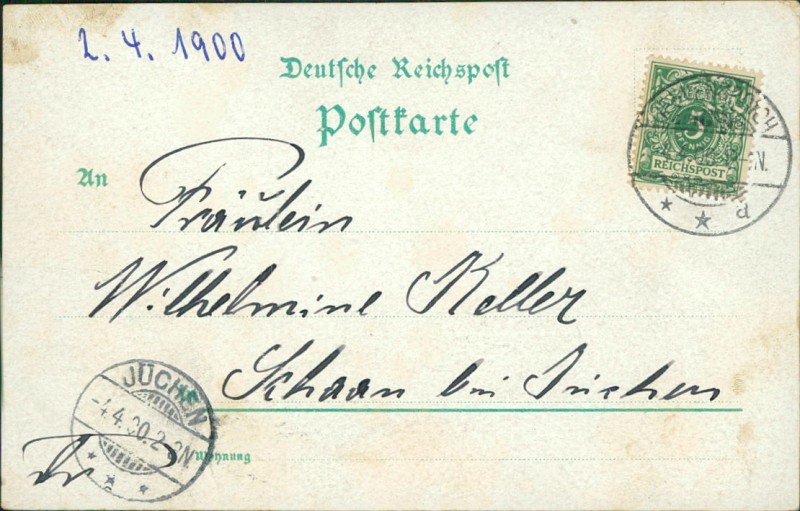 2. 4. 1900
Deutsche Reichspost
Postkarte
5
PFENNIG
REICHSPOST
d
An
Fräulein
Wilhelmine Keller
Schaan bei Jüchen
JÜCHEN
-4.4.00.2-3N.
Wohnung